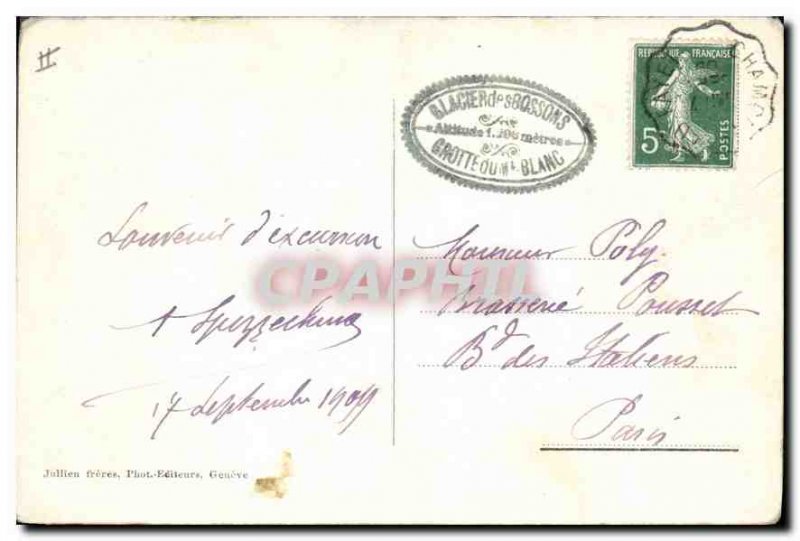 II
GLACIER des BOSSONS
Altitude 1.200 mètres
GROTTE DU Mt BLANC
REPUBLIQUE FRANÇAISE
5c
POSTES
CHAMO
Souvenir d'excursion
17 Septembre 1909
Monsieur Poly
Brasserie Pousset
Bd des Italiens
Paris
CPAPHIL
Jullien frères, Phot.-Editeurs, Genève